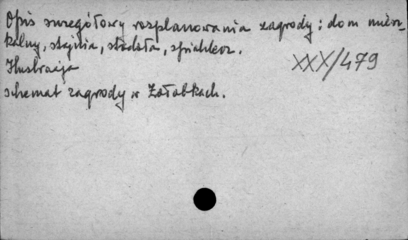 Opis szczegółowy rozplanowania zagrody: dom miesz-
kalny, stajnia, stodoła, spichlerz.
Ilustracja XXX/479
schemat zagrody w Żołobkach.